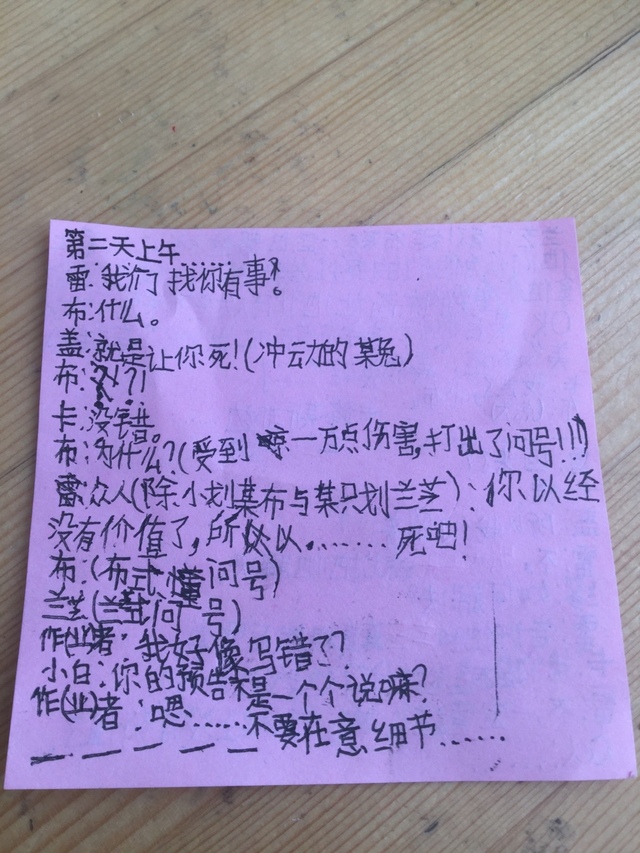 第二天上午……
雷:我们找你有事。
布:什么。
盖:就是让你死!(冲动的某兔)
布:?!
卡:没错。
布:为什么?(受到一万点伤害,打出了问号!!!)
雷:众人(除小划某布与某只划兰芝):你以经
没有价值了,所以以,……死吧!
布:(布式懂问号)
兰芝(兰式问号)
作(业)者:我好像写错了?
小白:你的预告不是一个个说嘛?
作(业)者:嗯……不要在意细节……
— — — — —